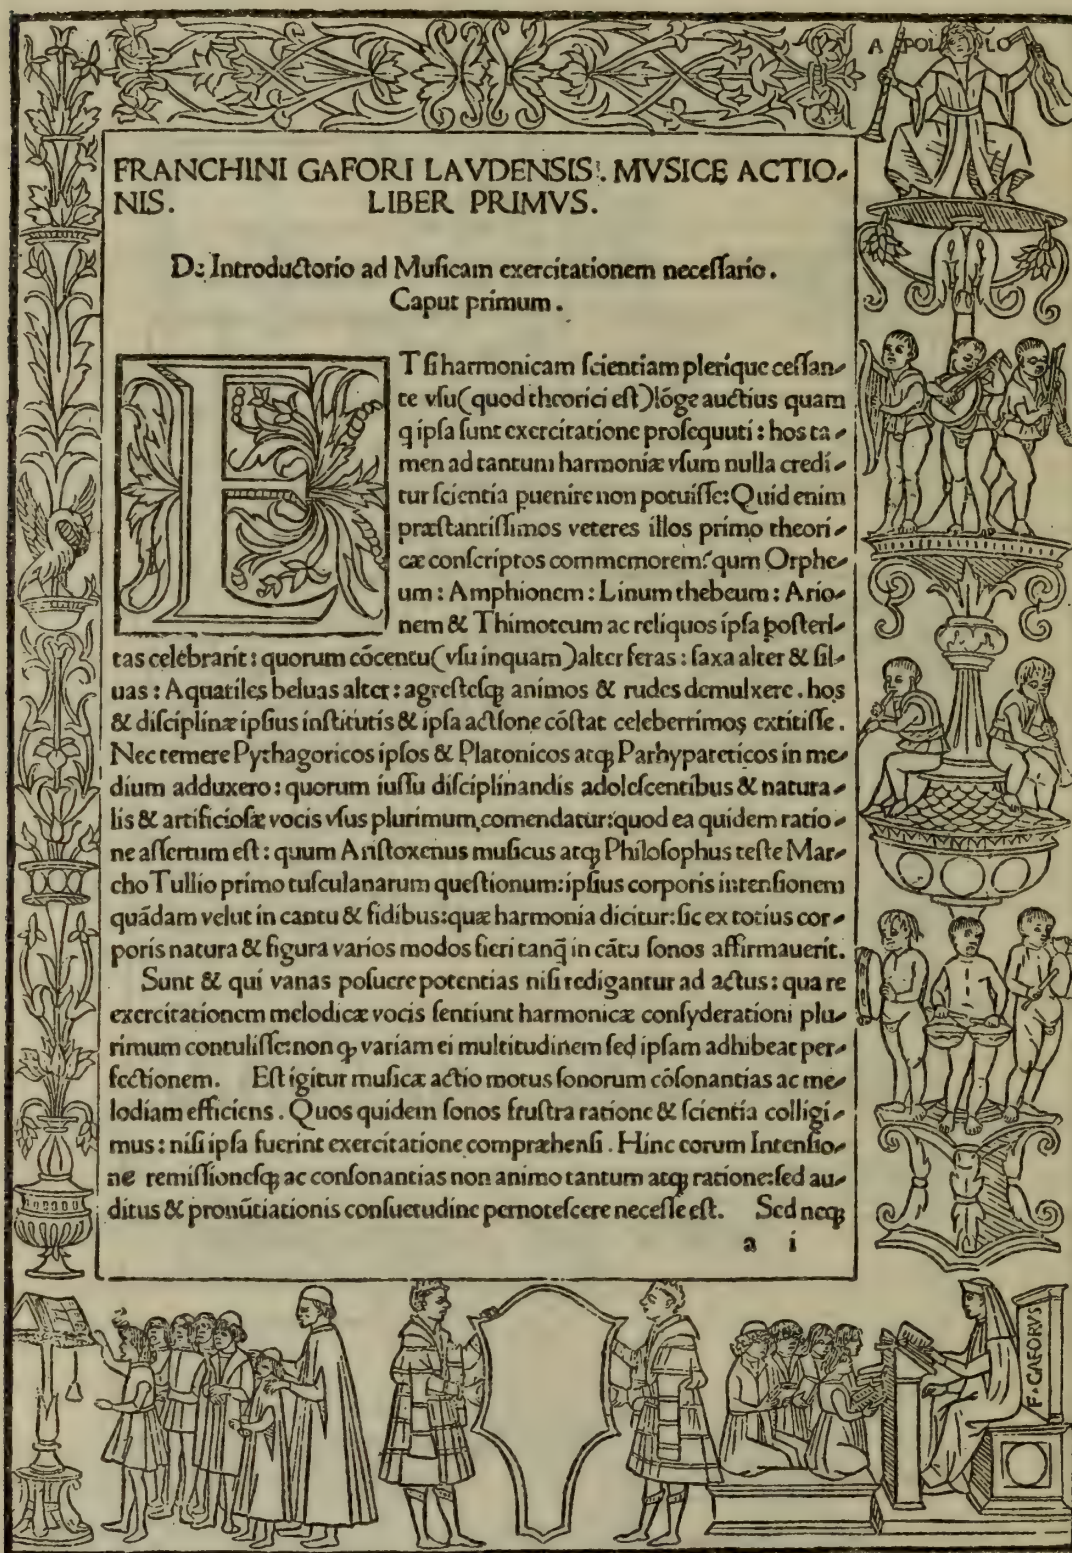 APOLLO
FRANCHINI GAFORI LAVDENSIS. MVSICĘ ACTIO-
NIS. LIBER PRIMVS.
De Introductorio ad Muſicam exercitationem neceſſario.
Caput primum.
ET ſi harmonicam ſcientiam plerique ceſſan-
te vſu (quod theorici eſt) lõge auctius quam
q ipſa ſunt exercitatione proſequuti: hos ta-
men ad tantum harmoniæ vſum nulla credi-
tur ſcientia puenire non potuiſſe: Quid enim
præſtantiſſimos veteres illos primo theori-
cæ conſcriptos commemorem? qum Orphe-
um: Amphionem: Linum thebeum: Ario-
nem & Thimoteum ac reliquos ipſa poſteri-
tas celebrarit: quorum cõcentu (vſu inquam) alter feras: ſaxa alter & ſil-
uas: Aquatiles beluas alter: agreſteſqꝫ animos & rudes demulxere. hos
& diſciplinæ ipſius inſtitutis & ipſa actione cõſtat celeberrimos extitiſſe.
Nec temere Pythagoricos ipſos & Platonicos atqꝫ Parhypateticos in me-
dium adduxero: quorum iuſſu diſciplinandis adoleſcentibus & natura-
lis & artificioſæ vocis vſus plurimum comendatur: quod ea quidem ratio-
ne aſſertum eſt: quum Ariſtoxenus muſicus atqꝫ Philoſophus teſte Mar-
cho Tullio primo tuſculanarum queſtionum: ipſius corporis intenſionem
quãdam velut in cantu & fidibus: quæ harmonia dicitur: ſic ex totius cor-
poris natura & figura varios modos fieri tanq̃ in cãtu ſonos affirmauerit.
Sunt & qui vanas poſuere potentias niſi redigantur ad actus: qua re
exercitationem melodicæ vocis ſentiunt harmonicæ conſyderationi plu-
rimum contuliſſe: non ꝙ variam ei multitudinem ſed ipſam adhibeat per-
fectionem. Eſt igitur muſicæ actio motus ſonorum cõſonantias ac me-
lodiam efficiens. Quos quidem ſonos fruſtra ratione & ſcientia colligi-
mus: niſi ipſa fuerint exercitatione compræhenſi. Hinc eorum Intenſio-
ne remiſſioneſqꝫ ac conſonantias non animo tantum atqꝫ ratione: ſed au-
ditus & pronũtiationis conſuetudine pernoteſcere neceſſe eſt. Sed neqꝫ
a i
F. GAFORVS